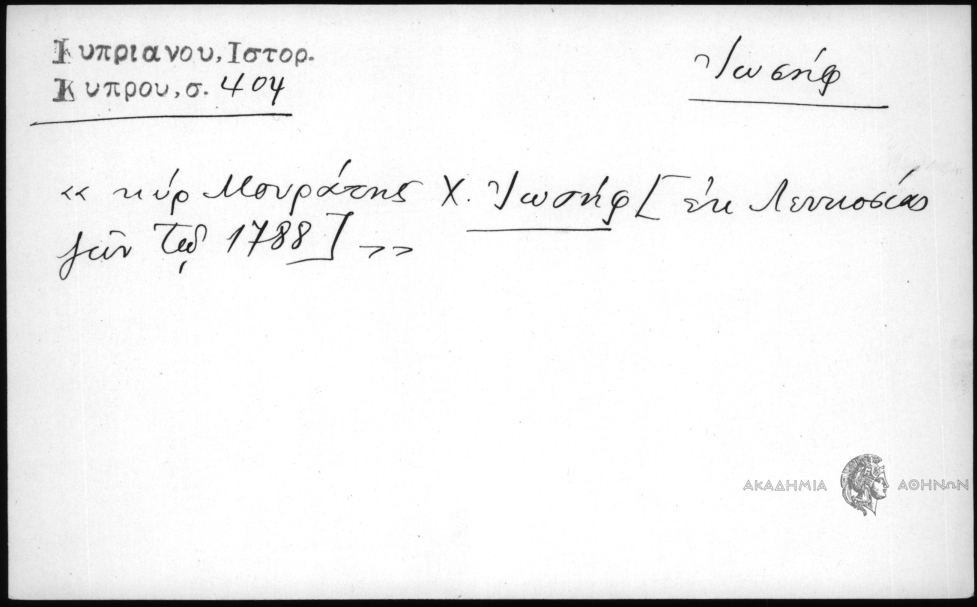 Κυπριανου, Ιστορ.
Κυπρου, σ. 404
Ἰωσήφ
« κὺρ Μουράτης Χ. Ἰωσήφ [ἐκ Λευκωσίας
ζῶν τῷ 1788] »
ΑΚΑΔΗΜΙΑ ΑΘΗΝΩΝ